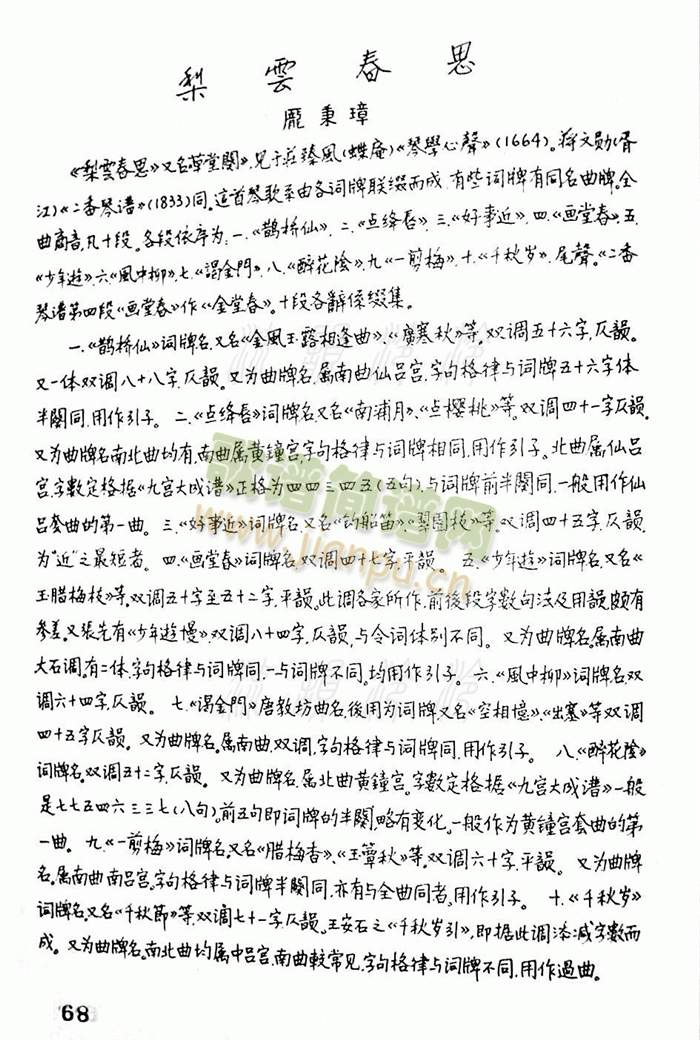 梨雲春思
龎秉璋
《梨雲春思》又名《草堂闋》,见于莊臻凤(蝶庵)《琴學心聲》(1664)。蒋文勋(胥
江)《二香琴谱》(1833)同。这首琴歌系由各词牌联缀而成,有些词牌有同名曲牌。全
曲商音,凡十段。各段依序为:一.《鹊桥仙》,二.《点绛唇》,三.《好事近》,四.《画堂春》,五.
《少年遊》,六.《風中柳》,七.《謁金門》,八.《醉花陰》,九.《一剪梅》,十.《千秋岁》,尾聲。《二香
琴谱》第四段《画堂春》作《金堂春》。十段各辭係缀集。
一.《鹊桥仙》词牌名,又名《金風玉露相逢曲》、《廣寒秋》等。双调五十六字,仄韻。
又一体双调八十八字,仄韻。又为曲牌名,属南曲仙吕宫,字句格律与词牌五十六字体
半闋同,用作引子。二.《点绛唇》词牌名,又名《南浦月》、《点樱桃》等。双调四十一字仄韻。
又为曲牌名,南北曲均有,南曲属黄鐘宫,字句格律与词牌相同,用作引子。北曲属仙吕
宫,字數定格据《九宫大成谱》正格为四四三四五(五句),与词牌前半闋同,一般用作仙
吕套曲的第一曲。三.《好事近》词牌名,又名《钓船笛》、《翠圆枝》等,双调四十五字,仄韻,
为"近"之最短者。四.《画堂春》词牌名,双调四十七字,平韻。五.《少年遊》词牌名,又名《
玉腊梅枝》等,双调五十字至五十二字,平韻。此调各家所作,前後段字數句法及用韻,颇有
参差。又張先有《少年遊慢》,双调八十四字,仄韻,与令词体别不同。又为曲牌名,属南曲
大石调,有二体,字句格律与词牌同,一与词牌不同,均用作引子。六.《風中柳》词牌名,双
调六十四字,仄韻。七.《謁金門》唐教坊曲名,後用为词牌,又名《空相憶》、《出塞》等,双调
四十五字仄韻。又为曲牌名,属南曲,双调,字句格律与词牌同,用作引子。八.《醉花陰》
词牌名,双调五十二字,仄韻。又为曲牌名,属北曲黄鐘宫,字數定格据《九宫大成谱》一般
是七七五四六三三七(八句)。前五句即词牌的半闋,略有变化。一般作为黄鐘宫套曲的第
一曲。九.《一剪梅》词牌名,又名《腊梅香》、《玉簟秋》等。双调六十字,平韻。又为曲牌
名,属南曲南吕宫,字句格律与词牌半闋同,亦有与全曲同者,用作引子。十.《千秋岁》
词牌名,又名《千秋節》等,双调七十一字,仄韻。王安石之《千秋岁引》,即据此调添减字数而
成。又为曲牌名,南北曲均属中吕宫,南曲較常见,字句格律与词牌不同,用作過曲。
歌谱简谱网
www.jianpu.cn
68